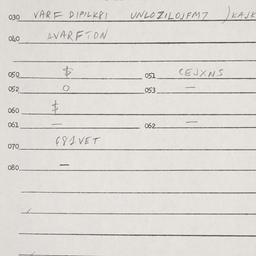 030 VARF DIPILK81 UNLOZILOJFM7 )KAJK
040 AVARFTON
050 $ 051 CEJXNS
052 O 053 —
060 $
061 — 062 —
070 G81VET
080 —